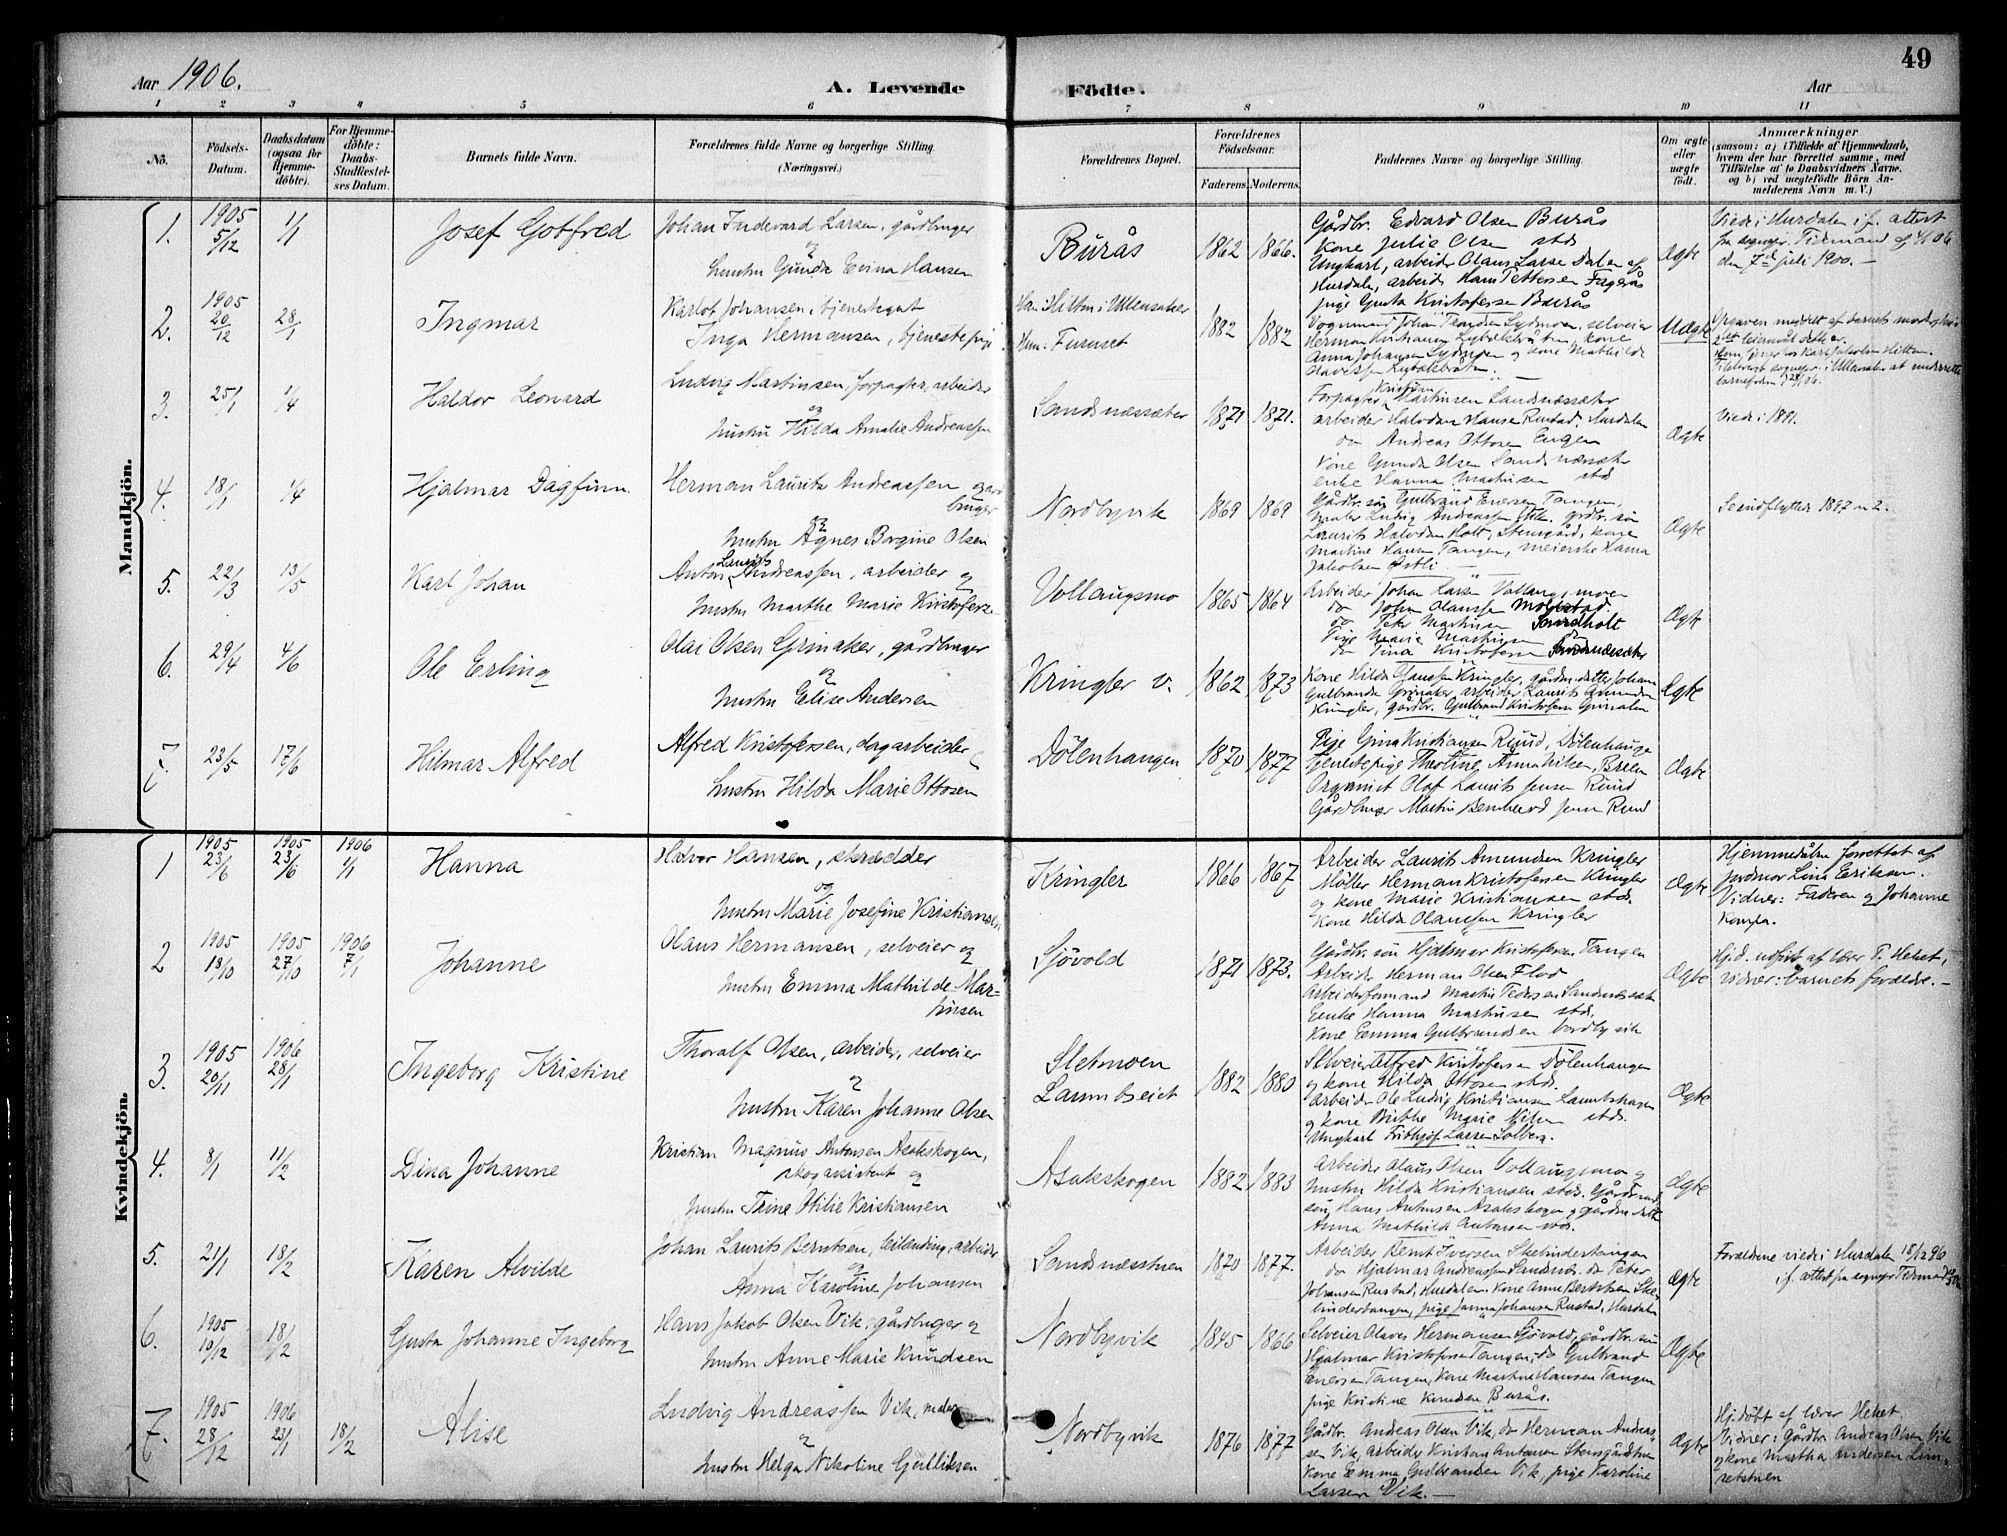 49
Aar 1906.
A. Levende Födte.
Aar
1 2 3 4 5 6 7 8 9 10 11
No.
Födsels-Datum.
Daabsdatum (ogsaa for Hjemme-döbte).
For Hjemme-döbte: Daabs-Stadfæstel-ses Datum.
Barnets fulde Navn.
Forældrenes fulde Navne og borgerlige Stilling. (Næringsvei.)
Forældrenes Bopæl.
Forældrenes Födselsaar.
Faderens. Moderens.
Faddernes Navne og borgerlige Stilling.
Om ægte eller uægte födt.
Anmærkninger
(saasom: a) i Tilfælde af Hjemmedaab, hvem der har forrettet samme, med Tilföielse af to Daabsvidners Navne, og b) ved uægtefödte Börn An-melderens Navn m. V.)
Mandkjön.
1. 1905 5/12 1/1 Josef Gotfred
Johan Indevard Larsen, gårdbruger
og
hustru Gunda Evina Hansen
Burås 1862 1866.
Gårdbr. Edvard Olsen Burås
Kone Julie Olsen stds
Ungkarl, arbeider Olaus Larsen Dalen af
Hurdalen, arbeid. Hans Pettersen Fagerås
pige Gusta Kristofersen Burås
Ægte
Viede i Hurdalen if. attest
fra sognepr.
den 7de juli 1900. —
2. 1905 20/12 28/1 Ingmar
Karlot Johansen, tjenestegut
Inga Hermansen, tjenestepige
Han: Hilton i Ullensaker
Hun: Furuset
1882 1882
Uægte
3. 25/1 1/4 Haldor Leonard
Ludvig Martinsen, forpagter, arbeider
og
hustru Hilda Amalie Andreassen
Sandsnæssæter 1871 1871.
Forpagter Kristian Martinsen Sandsnæssæter
arbeider Halvdan Hansen Rustad, Hurdalen
do Andreas Ottosen Engen
Kone Gunda Olsen Sandsnæssæter
enke Hanna Martinsen stds
Ægte
Viede i 1891.
4. 18/1 1/4 Hjalmar Dagfinn
Herman Laurits Andreassen gård
bruger
og
hustru Agnes Borgine Olsen
Nordbyvik 1869 1869
Gårdbr. søn Gulbrand Eversen Tangen,
maler Ludvig Andreassen Vik, grdbr. søn
Laurits Halvdan Holt, Stensgård, kone
Martine Hansen Tangen, meierske Hanna
Jakobsen Østli. —
Ægte
Se indflyttede 1897 n 2.
5. 22/3 13/5 Karl Johan
Anton Laurits Andreassen, arbeider og
hustru Marthe Marie Kristofersen
Vollaugsmo 1865 1864
Arbeider Johan Larsen Vollaugsmoen
do Johan Olaussen Molestad
do Peter Martinsen Sandholt
Pige Marie Martinsen do
do Tina Kristofersen Sandsnæssæter
Ægte
6. 29/4 4/6 Ole Erling
Olai Olsen Grinaker, gårdbruger
og
hustru Elise Andersen
Kringler v. 1862 1873
Kone Hilda Olaussen Kringler, gårdm. datter Johanne
Gulbrandsen Grinaker, arbeider Laurits Amundsen
Kringler, gårdbr. Gulbrand Kristofersen Grinaker
Ægte
7. 23/5 17/6 Hilmar Alfred
Alfred Kristofersen, dagarbeider
hustru Hilda Marie Ottosen
Dölenhaugen 1870 1877
Pige Gina Kristiansen Ruud, Dölenhaugen
Tjenestepige Theoline Anna Nilsen, Breen
Organist Olaf Laurits Jensen Ruud
Gårdbruger Martin Bernhard Jensen Ruud
Ægte
Kvindekjön.
1 1905 23/6 1905 23/6 1906 1/1 Hanna
Halvor Hansen, skrædder
og
hustru Marie Josefine Kristiansen
Kringler 1866 1867
Arbeider Laurits Amundsen Kringler
Møller Herman Kristofersen Kringler
og kone Marie Kristiansen stds.
Kone Hilda Olaussen Kringler
Ægte
Hjemmedåben forrettet af
jordmor Lina Eriksen.
Vidner: Faderen og Johanne
2 1905 18/10 1905 27/10 1906 7/1 Johanne
Olaus Hermansen, selveier og
hustru Emma Mathilde Mar-
tinsen
Sjövold 1871 1873.
Gårdbr. søn Hjalmar Kristofersen Tangen
Arbeider Herman Olsen Flod
Arbeidsformand Martin Pedersen Sandsnæssæter
Enke Hanna Martinsen stds.
Kone Emma Gulbrandsen Nordbyvik
Ægte
Hjd. udført af lærer P. Helset,
Vidner: Barnets forældre. —
3. 1905 20/11 1906 28/1 Ingeborg Kristine
Thoralf Olsen, arbeider, selveier
og
hustru Karen Johanne Olsen
Sletmoen
Laumbseiet 1882 1880
Selveier Alfred Kristofersen Dölenhaugen
og kone Hilda Ottosen stds.
arbeider Ole Ludvig Kristiansen Laumbshagen
og kone Birthe Marie Nilsen stds.
Ungkarl Frithjof Larsen Solberg.
Ægte
4. 8/1 11/2 Dina Johanne
Kristian Magnus Antonsen Asakskogen,
skogassistent og
hustru Trine Otilie Kristiansen
Asakskogen 1882 1883
Arbeider Olaus Olsen Vollaugsmo og
hustru Hilda Kristiansen stds. Gårdmands
søn Hans Antonsen Asakskogen og gårdm. datter
Anna Mathilde Antonsen stds.
Ægte
5. 21/1 18/2 Karen Alvilde
Johan Laurits Berntsen, leilending, arbeider
og
Anna Karoline Johansen
Sandsnæsstuen 1870 1877.
Arbeider Bernt Iversen Skebindertangen
do Hjalmar Andreassen Sandsnæs. do Peter
Johansen Rustad, Hurdalen. Kone Anne Berntsen Ske-
bindertangen, pige Janna Johansen Rustad, Hurdalen
Ægte
Forældrene viede i Hurdalen 18/12 96
if. attest fra sognepr.
6. 1905 10/12 18/2 Gusta Johanne Ingeborg
Hans Jakob Olsen Vik, gårdbruger og
hustru Anne Marie Knudsen
Nordbyvik 1845 1866
Selveier Olaves Hermansen Sjövold, gårdbr. søn
Hjalmar Kristofersen Tangen, do Gulbrand
Eversen Tangen, Kone Martine Hansen Tangen
pige Kristine Knudsen Burås.
Ægte
7. 1905 28/12 1906 23/1 18/2 Alise
Ludvig Andreassen Vik, maler
og
hustru Helga Nikoline Gulliksen
Nordbyvik 1876 1877
Gårdbr. Andreas Olsen Vik, do Herman Andreas-
sen Vik, arbeider Kristian Antonsen Stensgårdstuen
Kone Emma Gulbrandsen Vik, pige Karoline
Larsen Vik. —
Ægte
Hj.døbt af lærer Helset.
Vidner: Gårdbr. Andreas Olsen Vik
og kone Martha Andersen